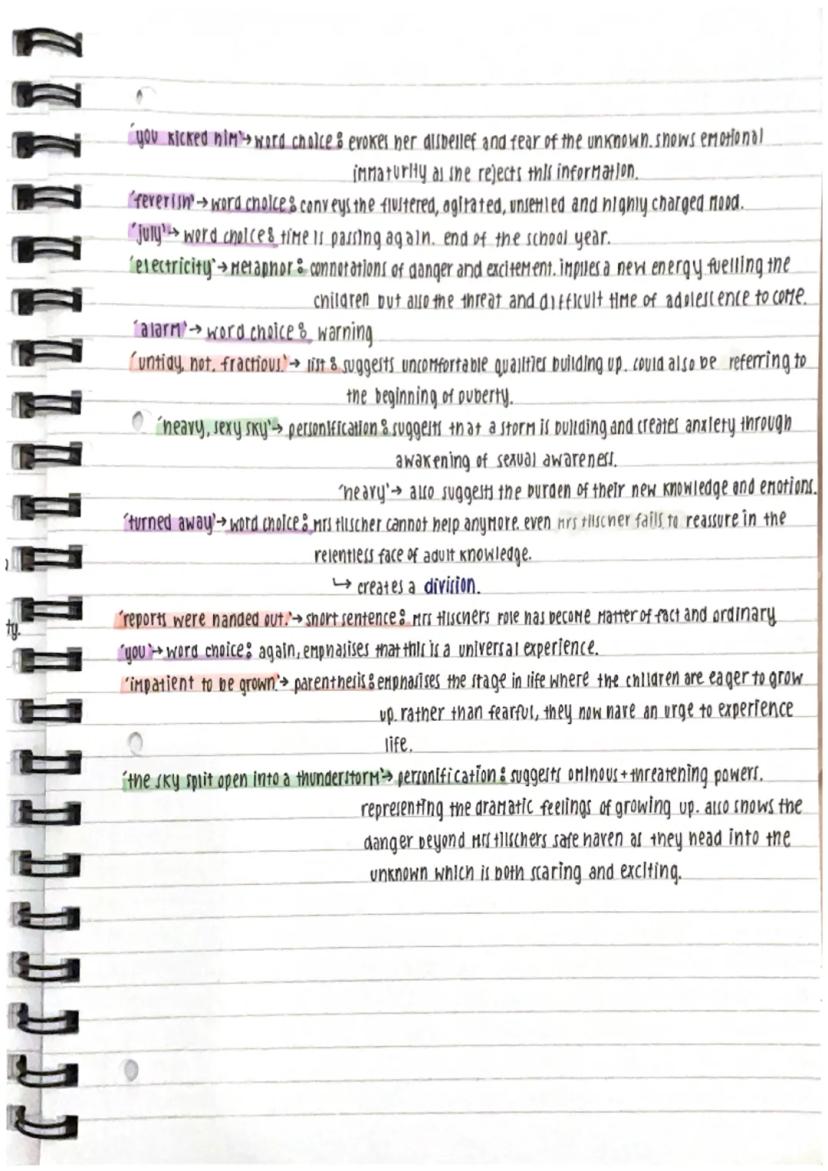 'you kicked him' → word choice: evokes her disbelief and fear of the unknown. shows emotional
immaturity as she rejects this information.
'feverish' → word choice: conveys the flustered, agitated, unsettled and highly charged mood.
'july' → word choice: time is passing again. end of the school year.
'electricity' → metaphor: connotations of danger and excitement. implies a new energy fuelling the
children but also the threat and difficult time of adolescence to come.
'alarm' → word choice: warning
'untidy, hot, fractious.' → list: suggests uncomfortable qualities building up. could also be referring to
the beginning of puberty.
'heavy, sexy sky' → personification: suggests that a storm is building and creates anxiety through
awakening of sexual awareness.
'heavy' → also suggests the burden of their new knowledge and emotions.
'turned away' → word choice: mrs tilscher cannot help anymore. even mrs tilscher fails to reassure in the
relentless face of adult knowledge.
↳ creates a division.
'reports were handed out.' → short sentence: mrs tilschers role has become matter of fact and ordinary
ty.
'you' → word choice: again, emphasises that this is a universal experience.
'impatient to be grown.' → parenthesis: emphasises the stage in life where the children are eager to grow
up. rather than fearful, they now have an urge to experience
life.
'the sky split open into a thunderstorm' → personification: suggests ominous + threatening powers.
representing the dramatic feelings of growing up. also shows the
danger beyond mrs tilschers safe haven as they head into the
unknown which is both scaring and exciting.